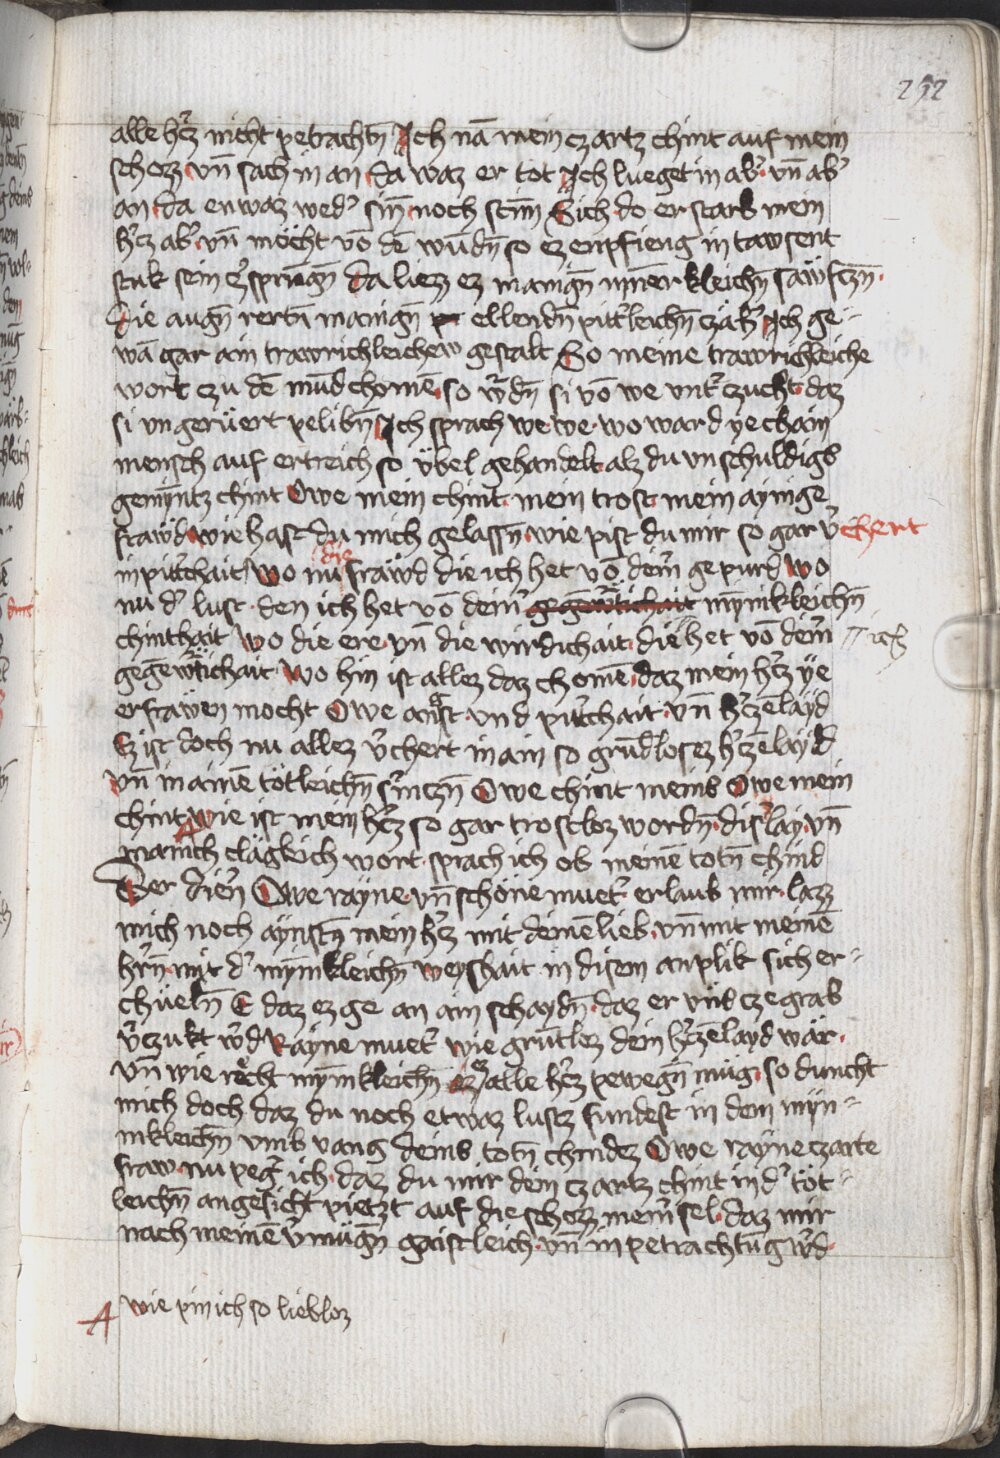 212
alle hʹcz nicht petrachtn̄ Ich nā mein czartz chint auf mein
schozz vn̄ sach in an da waz er tot Ich lueget in abʹ vn̄ abʹ
an da enwaz wedʹ sin̄ noch stim̄ Sich do er starb mein
hʹcz abʹ vn̄ möcht vō dē wūdn̄ so ez enpfieng in tawsent
stuk sein czʹsprūgn̄ da liezz ez manign̄ inn̄erkleichn̄ säwfczn̄
Die augn̄ rertn̄ manign̄ ellendn̄ pittʹleichn̄ czähʹ Ich ge-
wā gar ain trawrichleichew gestalt So meine trawrichleiche
wort czu dē mūd chomē so wʹdn̄ si vō we vntʹczucht daz
si vngerüert pelibn̄ Ich sprach we we wo ward ye chain
mensch auf ertreich so übel gehandelt alz du vnschuldigs
gemȳntz chint Owe mein chint mein trost mein aynige
fräwd wie hast du mich gelassn̄ wie pist du mir so gar vʹchert
in pittʹchait Wo nu die fräwd die ich het vō deinʹ gepurd Wo
nu dʹ lust den ich het vō deinʹ mȳnikleichn̄
chinthait Wo die ere vn̄ die wirdichait die ich het vō deinʹ
gegēwʹtichait Wo hin ist allez daz chomē daz mein hʹcz ye
erfräwen mocht Owe angst vnd pittʹchait vn̄ hʹczēlayd
Ez ist doch nu allez vʹchert in ain so grūdlosez hʹczēlayd
vn̄ in ainē tötleichn̄ smʹczn̄ Owe chint meins Owe mein
chint wie ist mein hʹcz so gar trostloz wordn̄ disʹlay vn̄
manich clägleich wort sprach ich ob meinē totn̄ chind
Der dienʹ Owe rayne vn̄ schöne muetʹ erlaub mir lazz
mich noch aynstn̄ mein hʹcz mit deinē lieb vn̄ mit meinē
hʹrn̄ mit dʹ mȳnikleichn̄ weyshait in disem anplik sich er-
chüeln̄ E daz ez ge an ain schaydn̄ daz er vns cze grab
vʹczukt wʹd Rayne muetʹ wie grūtlez dein hʹczēlayd wär
vn̄ wie recht mȳnikleichn̄ ez alle hʹcz pewegn̄ müg so duncht
mich doch daz du noch etwaz lustz fundest in dem mȳn-
nikleichn̄ vmbvang deins totn̄ chindez Owe rayne czarte
fraw nu pegʹ ich daz du mir dein czartz chint in dʹ töt-
leichn̄ angesicht pietzt auf die schozz meinʹ sel daz mir
nach meinē vʹmügn̄ gaistleich vn̄ in petrachtūg wʹd
A wie pin ich so liebloz